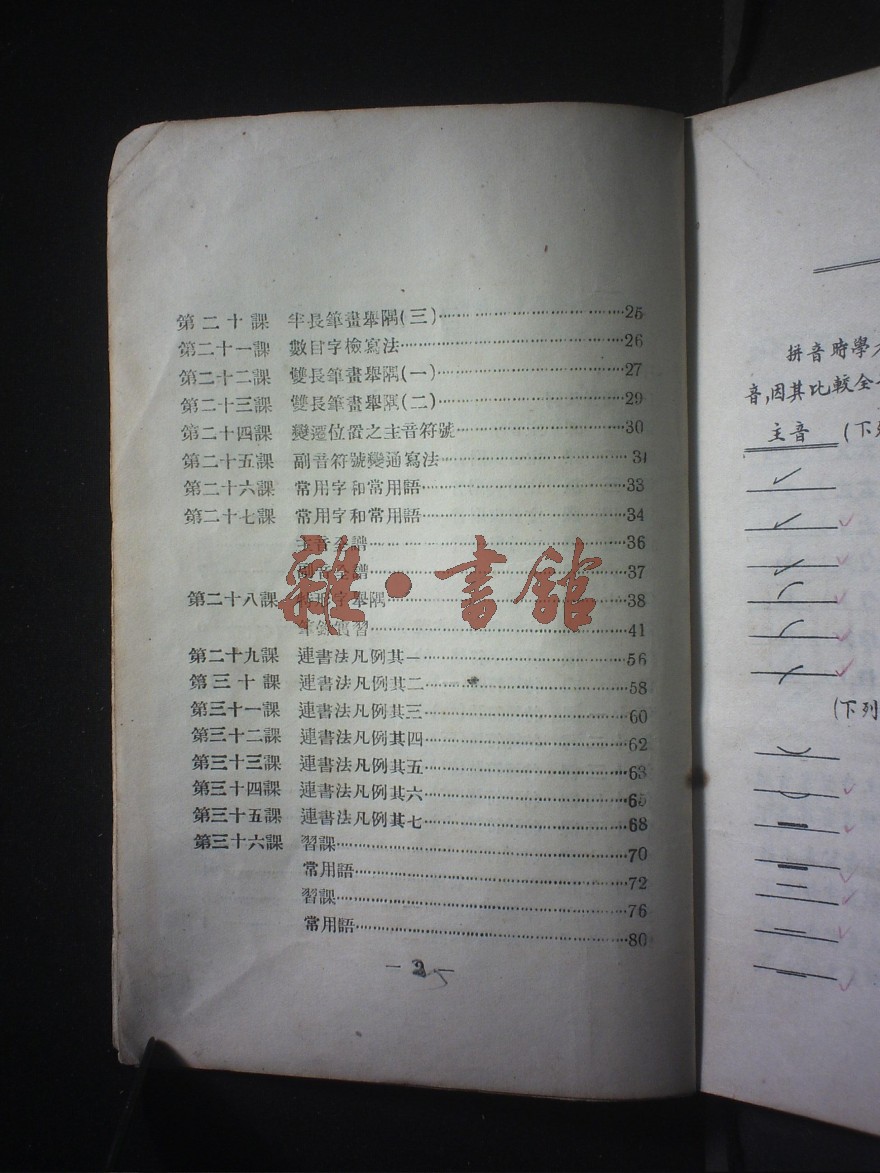 第二十課 半長筆畫舉隅(三)……25
第二十一課 數目字檢寫法……26
第二十二課 雙長筆畫舉隅(一)……27
第二十三課 雙長筆畫舉隅(二)……29
第二十四課 變遷位置之主音符號……30
第二十五課 副音符號變通寫法……31
第二十六課 常用字和常用語……33
第二十七課 常用字和常用語……34
主音全譜……36
副音全譜……37
第二十八課 特形字舉隅……38
筆錄實習……41
第二十九課 連書法凡例其一……56
第三十課 連書法凡例其二……58
第三十一課 連書法凡例其三……60
第三十二課 連書法凡例其四……62
第三十三課 連書法凡例其五……63
第三十四課 連書法凡例其六……65
第三十五課 連書法凡例其七……68
第三十六課 習課……70
常用語……72
習課……76
常用語……80
— 2 —
雜·書館
拼音時學
音,因其比較全
主音 (下列
(下列